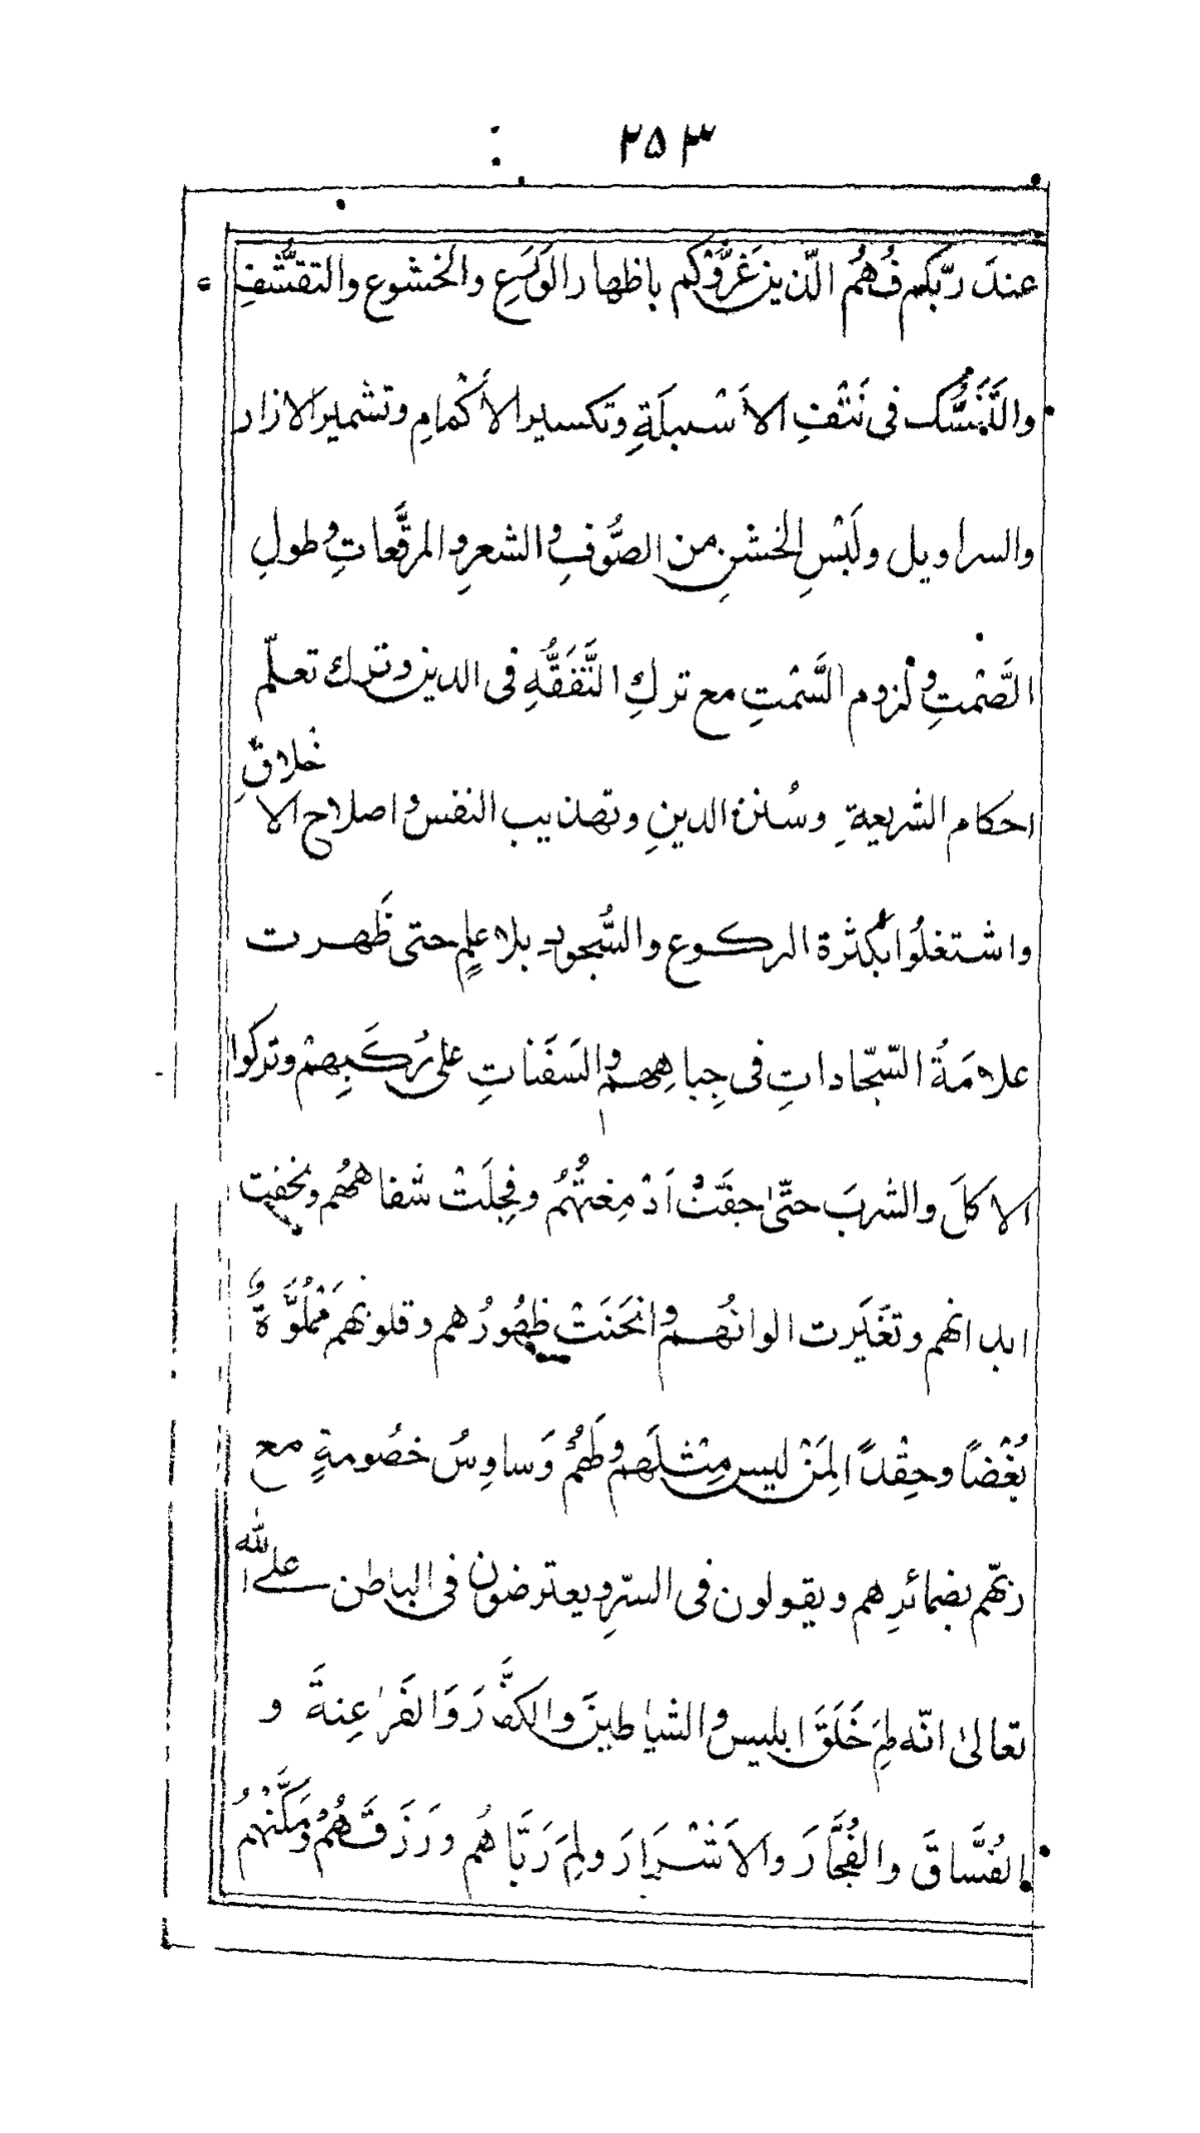 ۲۵۳
عندَ ربّكم فهُمُ الّذين غَرُّوْكم باظهار الوَرَعِ والخشوع والتقشّفِ
والتَّنَسُّك فى نَتْفِ الاَسْبلَةِ وتكسير الأكْمامِ وتشمير الازار
والسراويل ولَبْسِ الخشنِ من الصُّوفِ والشعرِ والمرقَّعاتِ وطولِ
الصَّمْتِ ولزوم السَّمْتِ مع تركِ التَّفَقُّهِ فى الدين وترك تعلّم
احكام الشريعةِ وسُنن الدينِ وتهذيب النفس واصلاح الاخلاقِ
واشتغلُوا بكثرة الركوع والسُّجودِ بلا علمٍ حتى ظَهرت
علامَةُ السّجّاداتِ فى جِباهِهم والسَفَناتِ على رُكَبِهمْ وتركوا
الاكلَ والشربَ حتّىٰ جفّتْ اَدْمِغتُهُمُ وقحِلَتْ شفاههُم ونحفت
ابدانهم وتغَيَرت الوانُهم وانحَنَتْ ظهُورُهم وقلوبُهمَ مَمْلُوَّةٌ
بُغْضًا وحِقْدًا لِمَنْ ليس مِثْلَهم ولَهُمْ وَساوِسُ خصُومةٍ مع
ربّهم بضمائرِهم ويقولون فى السرِّ ويعترضون فى الباطن على الله
تعالىٰ انّه لِمَ خَلَقَ ابليس والشياطينَ والكفَّارَ وَالفَراعِنةَ و
الفُسَّاقَ والفُجَّارَ والاَشْرَارَ ولِمَ رَبّاهُم ورَزَقَهُمْ ومَكَّنَهُمُ